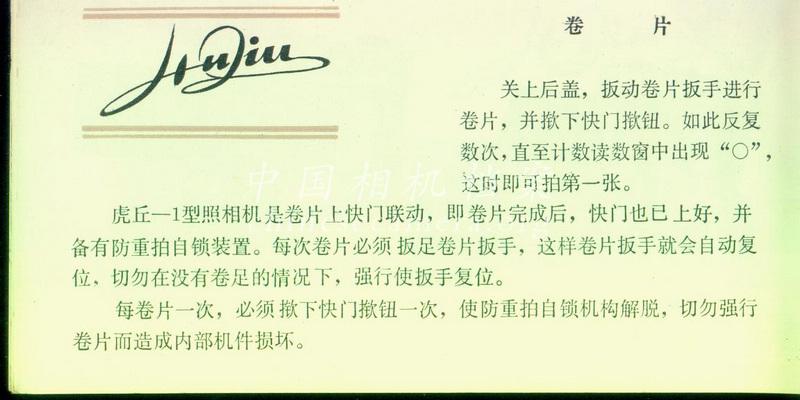 卷 片
HuQiu
关上后盖，扳动卷片扳手进行
卷片，并揿下快门揿钮。如此反复
数次，直至计数读数窗中出现“○”，
这时即可拍第一张。
虎丘—1型照相机是卷片上快门联动，即卷片完成后，快门也已上好，并
备有防重拍自锁装置。每次卷片必须扳足卷片扳手，这样卷片扳手就会自动复
位，切勿在没有卷足的情况下，强行使扳手复位。
每卷片一次，必须揿下快门揿钮一次，使防重拍自锁机构解脱，切勿强行
卷片而造成内部机件损坏。